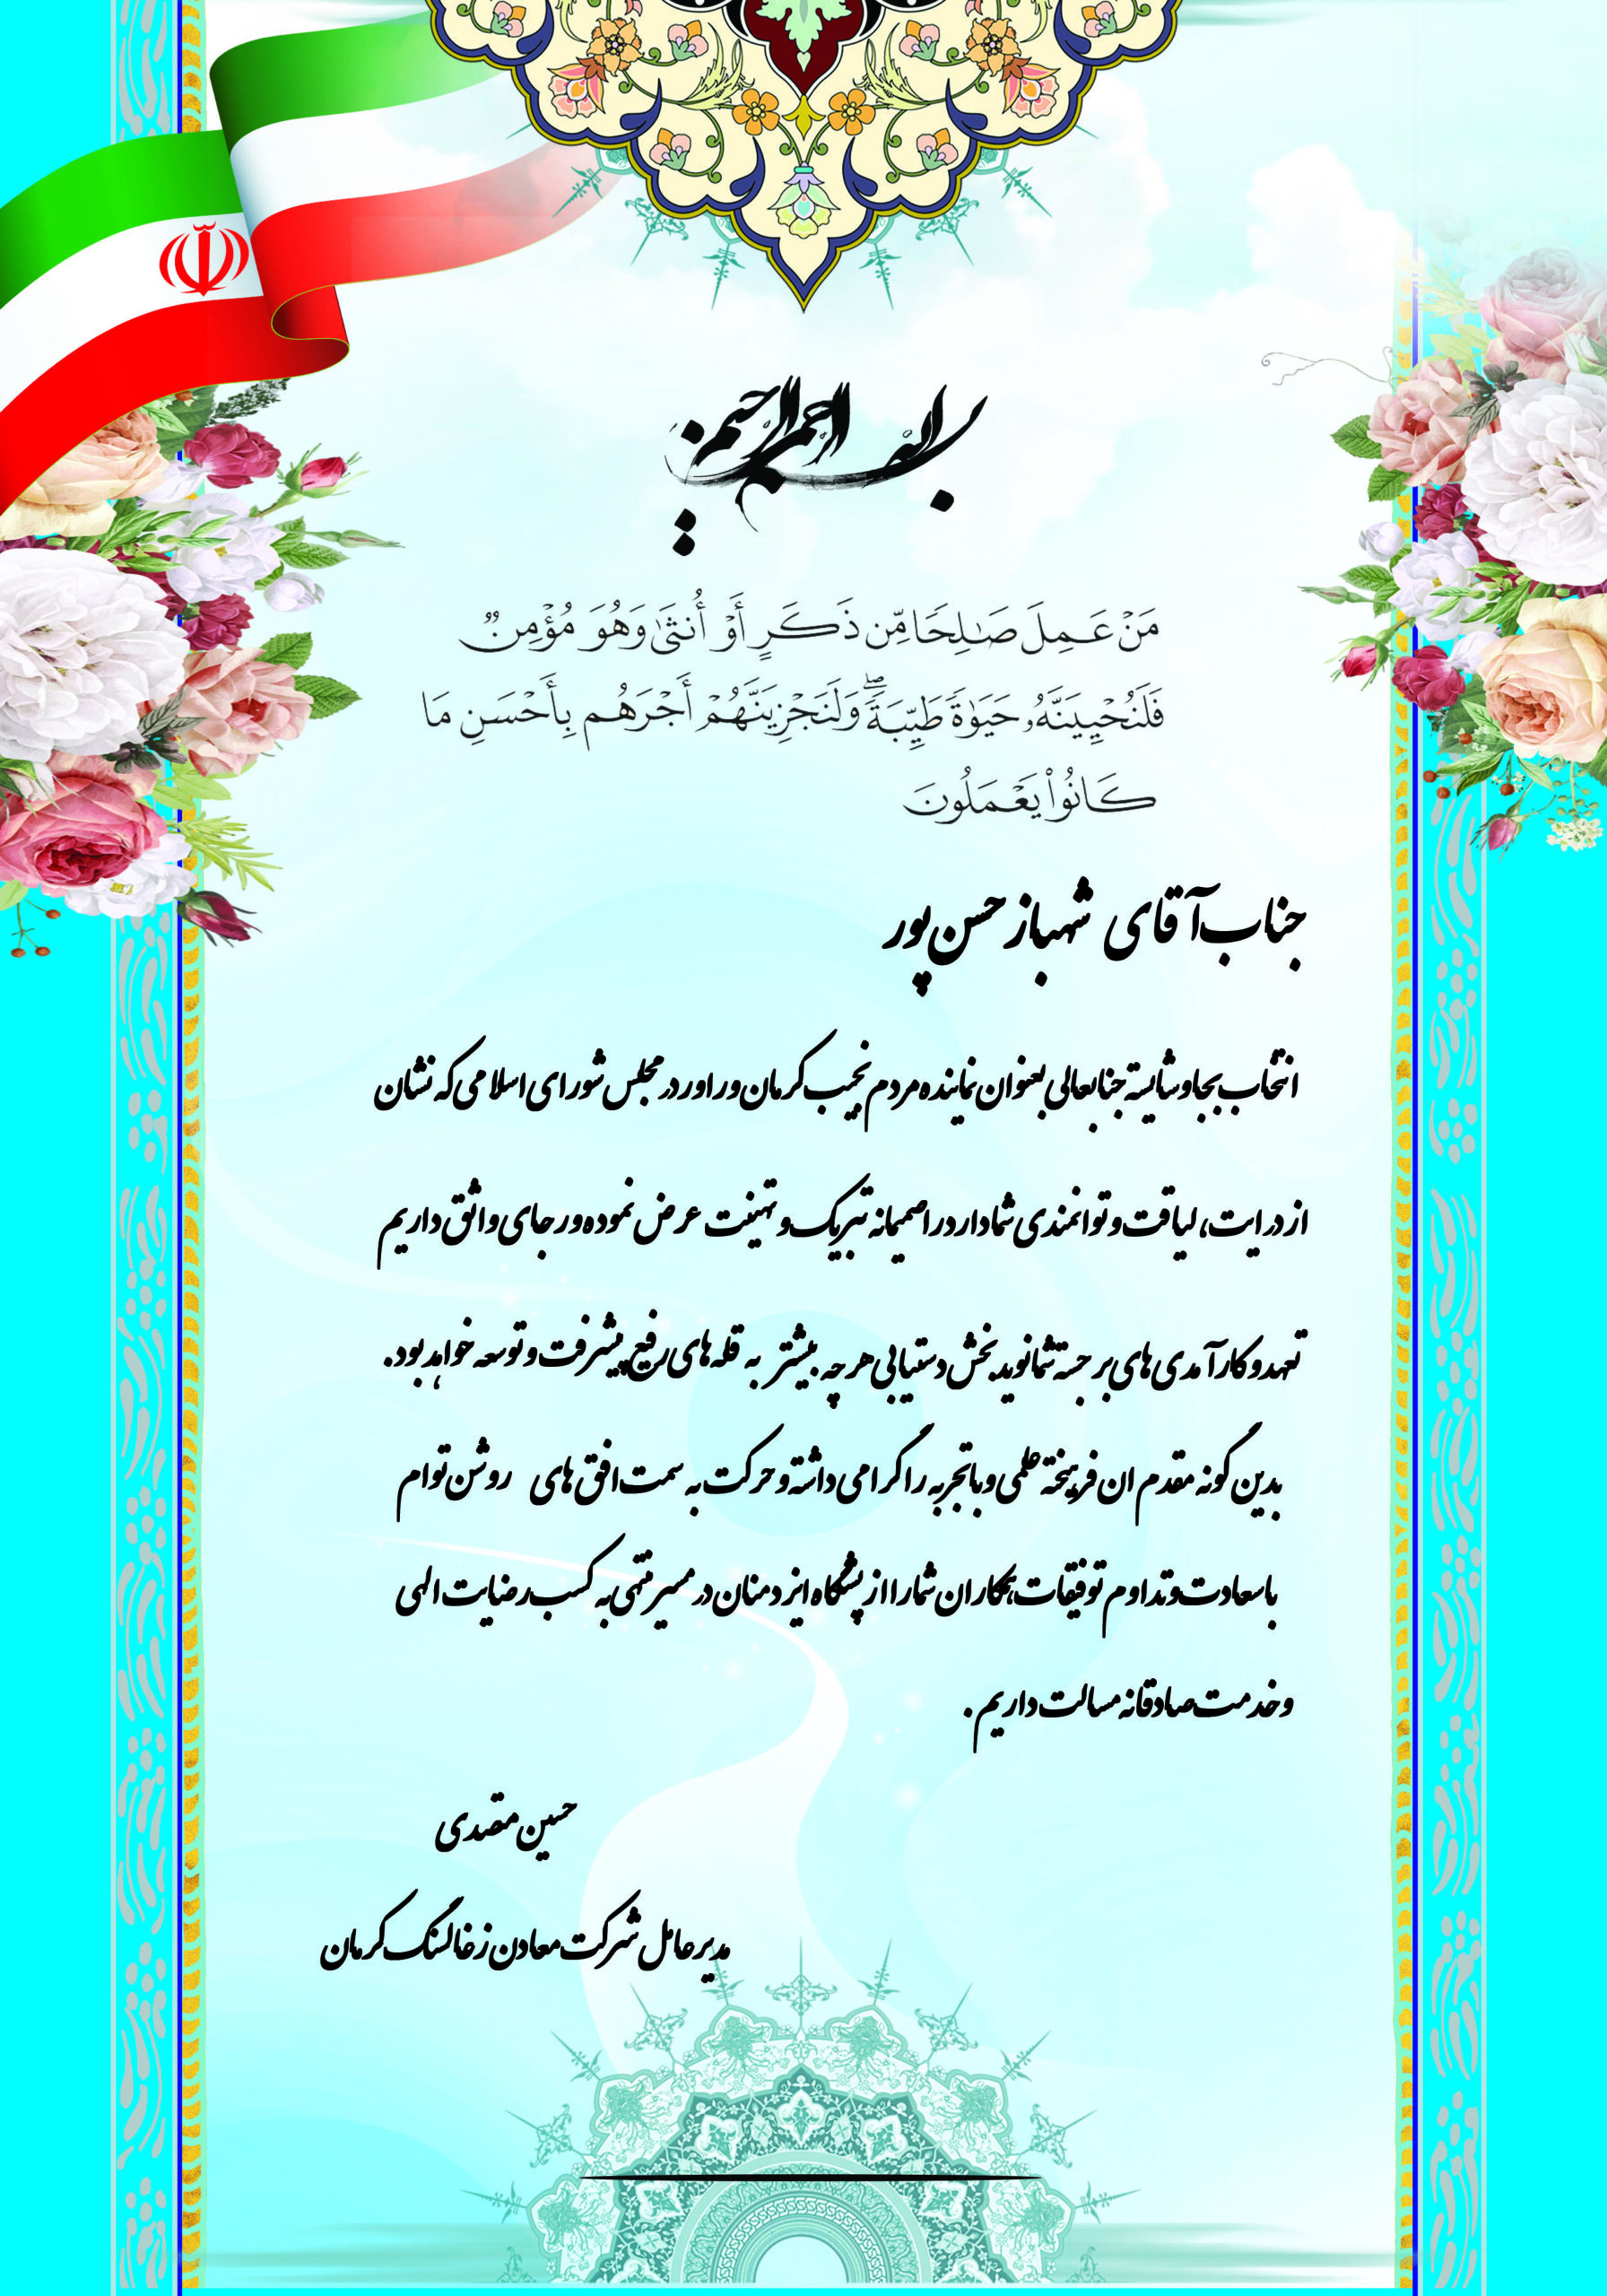 بسم الله الرحمن الرحیم
مَنْ عَمِلَ صَـٰلِحًا مِّن ذَكَرٍ أَوْ أُنثَىٰ وَهُوَ مُؤْمِنٌ
فَلَنُحْيِيَنَّهُۥ حَيَوٰةً طَيِّبَةً ۖ وَلَنَجْزِيَنَّهُمْ أَجْرَهُم بِأَحْسَنِ مَا
كَانُوا۟ يَعْمَلُونَ
جناب آقای شهباز حسن پور
انتخاب بجا و شایسته جنابعالی بعنوان نماینده مردم نجیب کرمان و راور در مجلس شورای اسلامی که نشان
از درایت، لیاقت و توانمندی شما دارد را صمیمانه تبریک و تهنیت عرض نموده و رجای واثق داریم
تعهد و کارآمدی های برجسته شما نوید بخش دستیابی هر چه بیشتر به قله های رفیع پیشرفت و توسعه خواهد بود.
بدین گونه مقدم ان فرهیخته علمی و باتجربه را گرامی داشته و حرکت به سمت افق های روشن توام
با سعادت و تداوم توفیقات همکاران شما را از پیشگاه ایزد منان در مسیر منتهی به کسب رضایت الهی
و خدمت صادقانه مسالت داریم.
حسین مقصدی
مدیرعامل شرکت معادن زغالسنگ کرمان